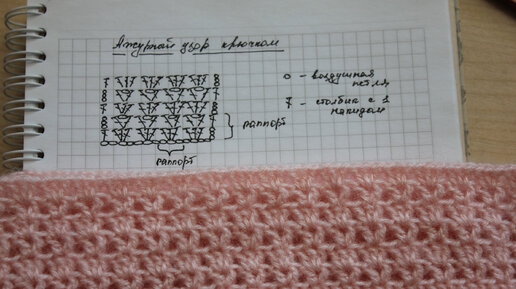 Ажурный узор крючком
о - воздушная
петля
† - столбик с 1
накидом
раппорт
раппорт